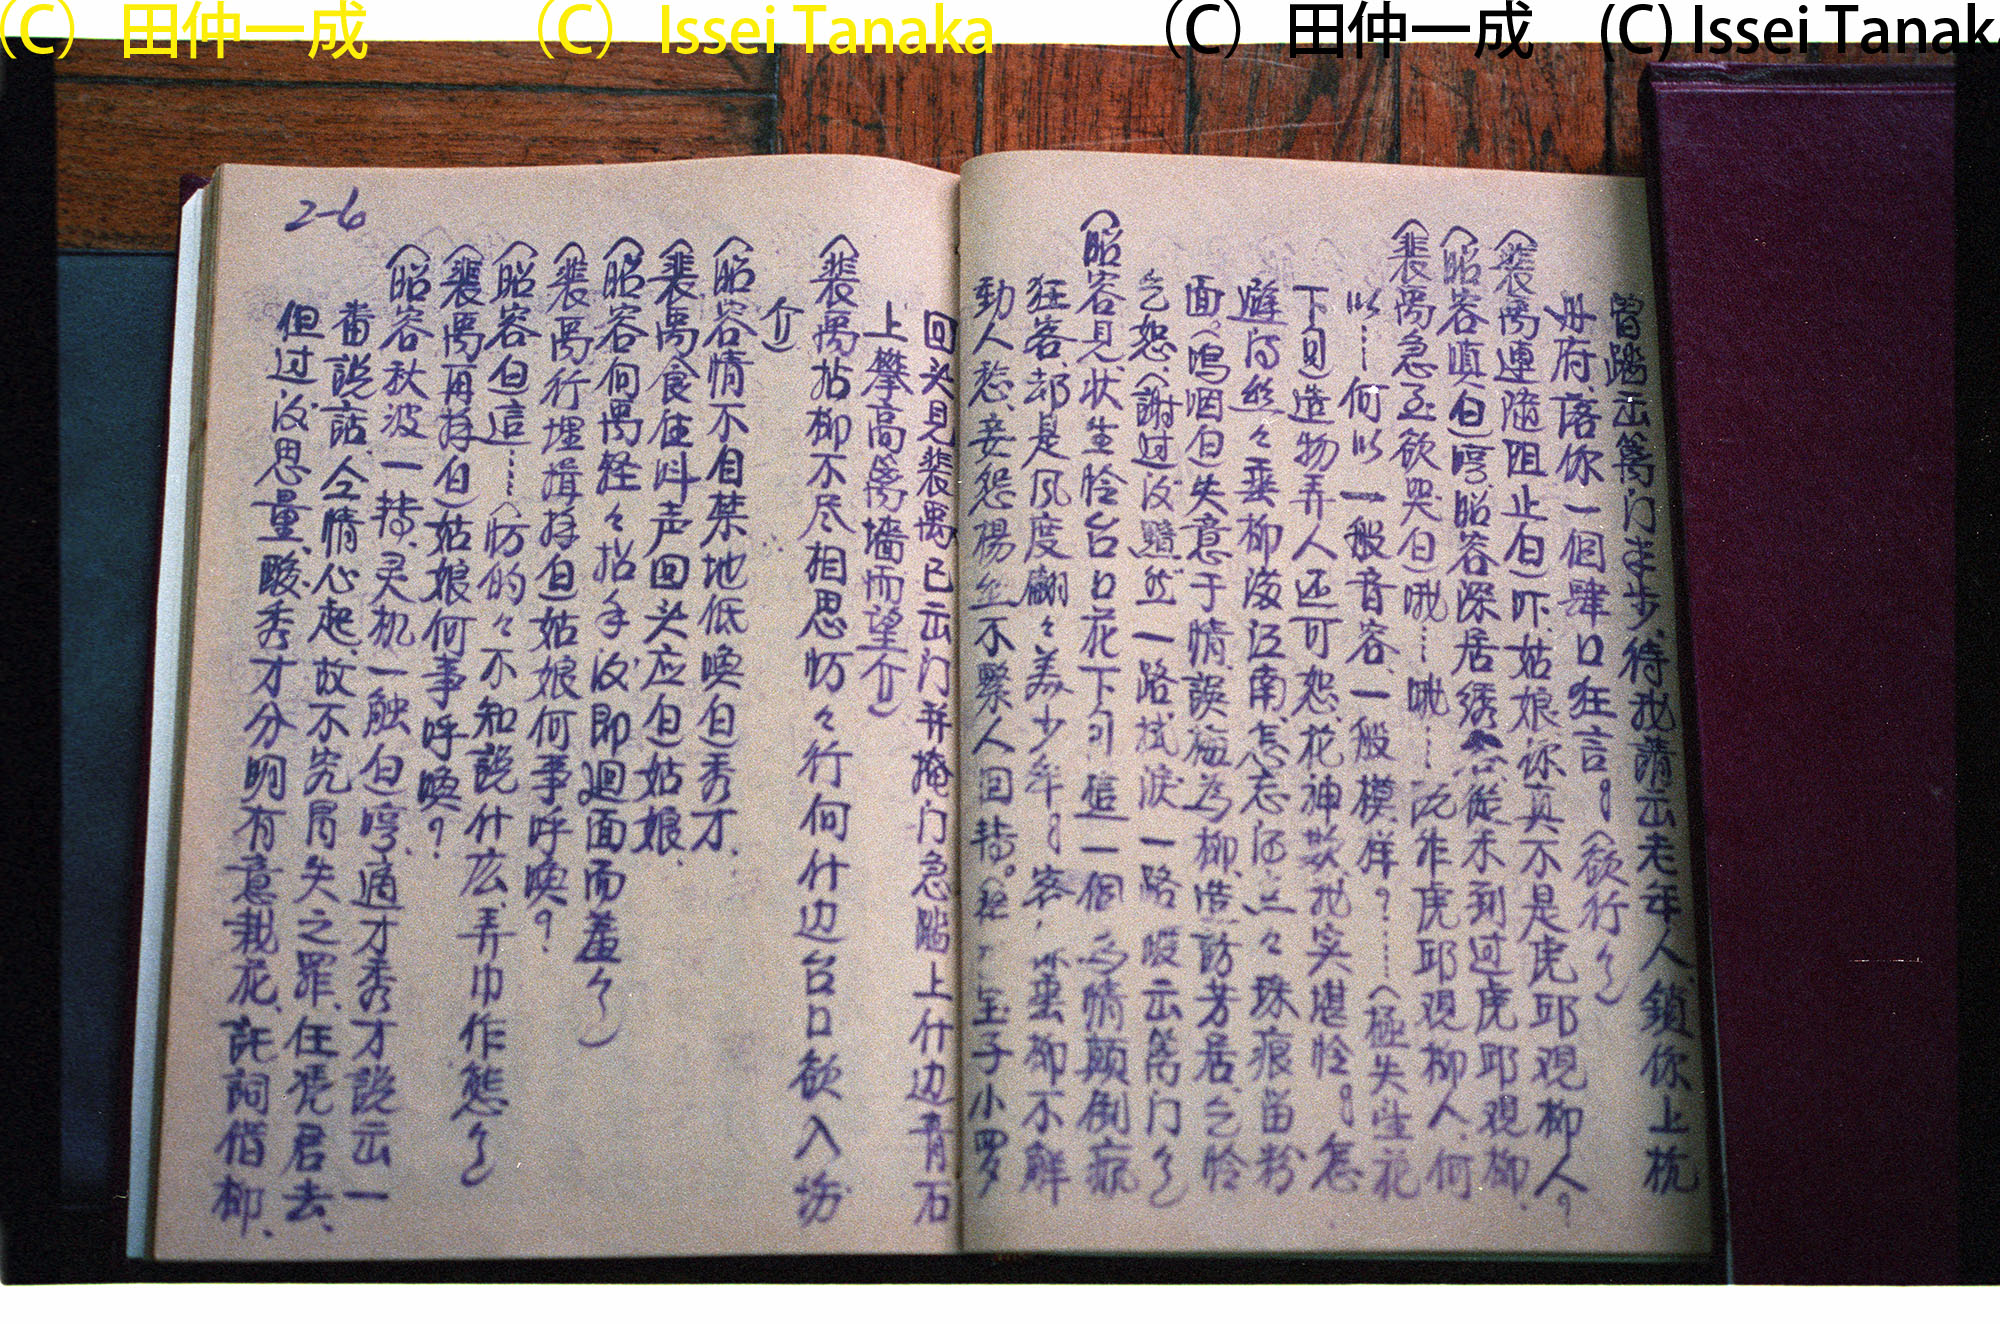 (C) 田仲一成 (C) Issei Tanaka (C) 田仲一成 (C) Issei Tanaka
曾踏出篱门半步、待我請出老年人、鎖你上杭
州府、落你一個肆口狂言。(欲行介)
(裴禹連隨阻止白)吓、姑娘你真不是虎邱观柳人。
(昭容嗔白)哼、昭容深居綉谷、從未到过虎邱观柳、
(裴禹急至欲哭白)哦……哦……既非虎邱观柳人、何
以……何以一般音容、一般模样?……(極失望花
下句)造物弄人还可恕、花神欺我实堪怜。怎
避得丝々垂柳湲江南、怎忘得点々珠痕留粉
面。(嗚咽白)失意于情、誤梅为柳、造訪芳居、乞怜
乞恕、(謝过後黯然一路拭淚一路叚出篱门介)
(昭容見状生怜台口花下句)這一個为情颠倒痴
狂客、却是风度翩々美少年。客、垂柳不解
動人愁、妾怨楊丝不繫人囘轉。小罗
2-6
回头見裴禹已出门并掩门急踏上什边青石
上攀高篱墙而望介)
(裴禹拈柳不尽相思、忉々行何什边台口欲入场
介)
(昭容情不自禁地低喚白)秀才、
(裴禹食住料声回头应白)姑娘、
(昭容何禹轻々招手後即迴面而羞介)
(裴禹行埋揖拜白)姑娘何事呼喚?
(昭容白)這……(忉忉々不知説什么、弄巾作態介)
(裴禹再拜白)姑娘何事呼喚?
(昭容秋波一轉、灵机一触白)哼、適才秀才説出一
畨説話、仝情心起、故不究冒失之罪、任凭君去、
但过後思量、酸秀才分明有意栽花、託詞借柳、